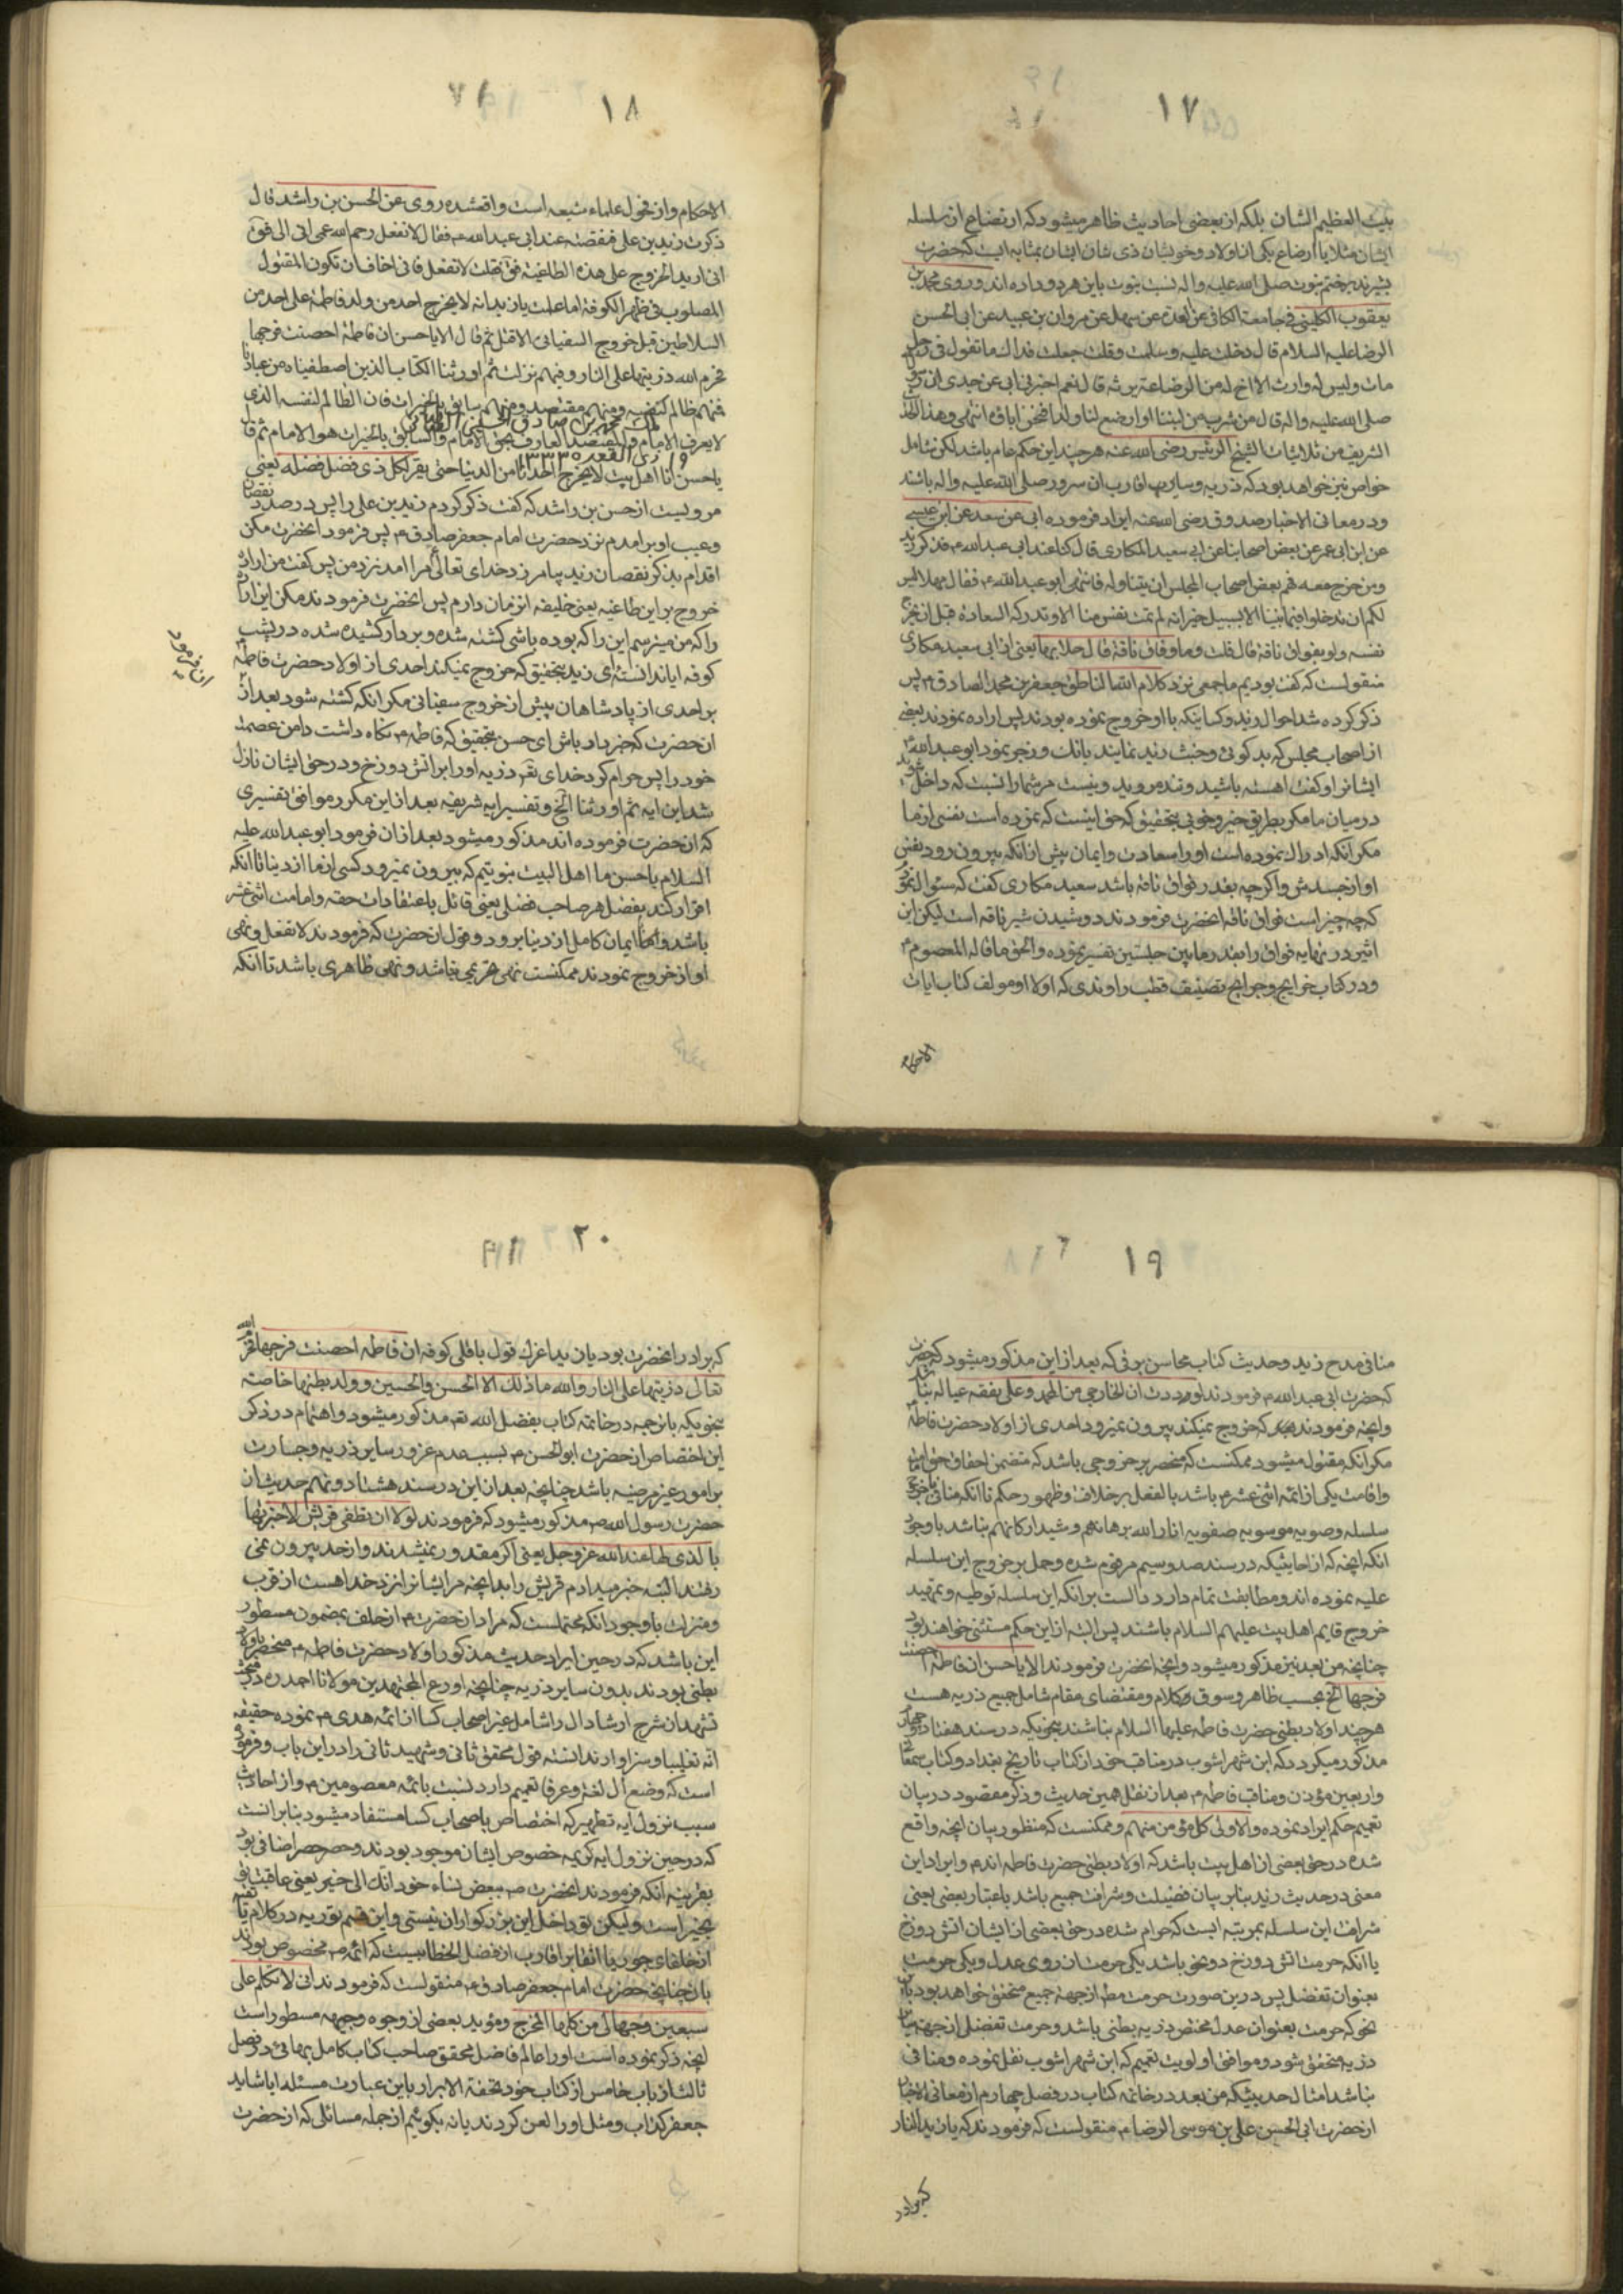 ۱۷
بیت العظیم الشان بلکه از بعضی احادیث ظاهر میشود که ارتضاع از سلسله
ایشان مثلا یا ارضاع یکی از اولاد و خویشان ذی شان ایشان بمثابه ایست که حضرت
صلی الله علیه و اله نسبت بنوت باین هر دو داده اند و روی محمد بن
یعقوب الکلینی فی جامعه الکافی عن العدة عن سهل عن مروان بن عبید عن ابی الحسن
الرضا علیه السلام قال دخلت علیه و سلمت و قلت جعلت فداك ما تقول فی رجل
مات و لیس له وارث الا اخ له من الرضاعة یرثه قال نعم اخبرنی ابی عن جدی ان
صلی الله علیه و اله قال من شرب من لبننا او ارضع لنا ولدا فنحن اباؤه انتهی و هذا
الشریف من ثلاثیات الشیخ الرئیس رضی الله عنه هر چند این حکم عام باشد لکن شامل
خواص نیز خواهد بود که ذریه و سایر اقارب ان سرور صلی الله علیه و اله باشند
و در معانی الاخبار صدوق رضی الله عنه ایراد فرموده ابی عن سعد عن ابن عیسی
عن ابن ابی عمیر عن بعض اصحابنا عن ابی سعید المکاری قال کنا عند ابی عبدالله ع فذکر زید
و من خرج معه فهم بعض اصحاب المجلس ان یتناوله فانتهی ابو عبدالله ع فقال مهلا لیس
لکم ان تدخلوا فیما بیننا الا بسبیل خیر انه لم تمت نفس منا الا و تدرکه السعادة قبل ان تخرج
نفسه و لو بفواق ناقة قال قلت و ما فواق ناقة قال حلابها یعنی از ابی سعید مکاری
منقولست که گفت بودیم ما جمعی نزد کلام الله الناطق جعفر بن محمد الصادق ع پس
ذکر کرده شد احوال زید و کسانیکه با او خروج نموده بودند پس اراده نمودند بعضی
از اصحاب مجلس که بدگوئی و خبث زید نمایند بانك و زجر نمود ابو عبدالله ع
ایشانرا و گفت اهسته باشید و تند مروید و نیست مر شما را نسبت که داخل شوید
در میان ما مگر بطریق خیر و خوبی بتحقیق که حق اینست که نمرده است نفسی از ما
مگر انکه ادراك نموده است او را سعادت و ایمان پیش از انکه بیرون رود نفس
او از جسدش و اگرچه بقدر فواق ناقه باشد سعید مکاری گفت که سئوال نمودم
که چه چیز است فواق ناقه انحضرت فرمودند دوشیدن شیر ناقه است لیکن ابن
اثیر در نهایه فواق را بقدر مابین حلبتین تفسیر نموده و الحق ما قاله المعصوم ع
و در کتاب خرایج و جرایح تصنیف قطب راوندی که اولا او مولف کتاب ایات
الاحکام
۱۸
الاحکام و از فحول علماء شیعه است واقعشده روی عن الحسن بن راشد قال
ذکرت زید بن علی فنقصته عند ابی عبدالله ع فقال لا تفعل رحم الله عمی اتی ابی فق
انی ارید الخروج علی هذه الطاغیة فق قلت لا تفعل فانی اخاف ان تکون المقتول
المصلوب فی ظهر الکوفة اما علمت یا زید انه لا یخرج احد من ولد فاطمة علی احد من
السلاطین قبل خروج السفیانی الا قتل ثم قال الا یا حسن ان فاطمة احصنت فرجها
فحرم الله ذریتها علی النار و فیهم نزلت ثم اورثنا الکتاب الذین اصطفیناه من عبادنا
فمنهم ظالم لنفسه و منهم مقتصد و منهم سابق بالخیرات فان الظالم لنفسه الذی
لا یعرف الامام و المقتصد العارف بحق الامام و السابق بالخیرات هو الامام ثم قال
یا حسن انا اهل بیت لا یخرج احدنا من الدنیا حتی یقر لکل ذی فضل فضله یعنی
مرویست از حسن بن راشد که گفت ذکر کردم زید بن علی را پس در صدد نقصان
و عیب او برامدم نزد حضرت امام جعفر صادق ع پس فرمود انحضرت مکن
اقدام بذکر نقصان زید بیامرزد خدای تعالی مرا امد نزد من پس گفت من اراده
خروج بر این طاغیه یعنی خلیفه ان زمان دارم پس انحضرت فرمودند مکن این اراده
را که من میترسم این را که بوده باشی کشته شده و بر دار کشیده شده در پشت
کوفه ایا ندانسته ای زید بتحقیق که خروج نمیکند احدی از اولاد حضرت فاطمه ع
بر احدی از پادشاهان پیش از خروج سفیانی مگر انکه کشته شود بعد از
ان حضرت که خبردار باش ای حسن بتحقیق که فاطمه ع نگاه داشت دامن عصمت
خود را پس حرام کرد خدای تعا ذریه او را بر اتش دوزخ و در حق ایشان نازل
شد این ایه ثم اورثنا الخ و تفسیر ایه شریفه بعد از این مکرر موافق تفسیری
که ان حضرت فرموده اند مذکور میشود بعد از ان فرمود ابو عبدالله علیه
السلام یا حسن ما اهل البیت نبوتیم که بیرون نمیرود کسی از ما از دنیا تا انکه
اقرار کند بفضل هر صاحب فضلی یعنی قائل باعتقادات حقه و امامت اثنی عشر
باشد و با ایمان کامل از دنیا برود و قول ان حضرت که فرمودند لا تفعل و نهی
او از خروج نمودند ممکنست نهی تحریمی نباشد و نهی ظاهری باشد تا انکه
ان فرمود
۱۹
منافی مدح زید و حدیث کتاب محاسن برقی که بعد از این مذکور میشود که
که حضرت ابی عبدالله ع فرمودند لوددت ان الخارجی من ال محمد و علی نفقة عیاله نباشد
و انچه فرمودند که خروج نمیکند بیرون نمیرود احدی از اولاد حضرت فاطمه ع
مگر انکه مقتول میشود ممکنست که منحصر بر خروجی باشد که متضمن احقاق حق امامت
و اقامت یکی از ائمه اثنی عشر ع باشد بالفعل برخلاف و ظهور حکم تا انکه منافی با خروج
سلسله صفویه موسویه صفویه انار الله برهانهم و شید ارکانهم نباشد با وجود
انکه انچه که از احادیثیکه در سند صد و سیم مرقوم شده و حمل بر خروج این سلسله
علیه نموده اند و مطابقت تمام دارد دالست بر انکه این سلسله توطیه و تمهید
خروج قایم اهل بیت علیهم السلام باشند پس البته از این حکم مستثنی خواهند بود
چنانچه من بعد نیز مذکور میشود و انچه انحضرت فرمودند الا یا حسن ان فاطمة احصنت
فرجها الخ بحسب ظاهر و سوق کلام و مقتضای مقام شامل جمیع ذریه هست
هر چند اولاد بطنی حضرت فاطمه علیها السلام نباشند بنحویکه در سند هفتاد و چهار
مذکور میگردد که ابن شهراشوب در مناقب خود از کتاب تاریخ بغداد و کتاب سمعانی
و اربعین مؤذن و مناقب فاطمه ع بعد از نقل همین حدیث و ذکر مقصود در بیان
تعمیم حکم ایراد نموده و الاولی کل مؤمن منهم و ممکنست که منظور بیان انچه واقع
شده در حق بعضی از اهل بیت باشد که اولاد بطنی حضرت فاطمه اند ع و ایراد این
معنی در حدیث زید بنا بر بیان فضیلت و شرافت جمیع باشد باعتبار بعضی یعنی
شرافت این سلسله بمرتبه ایست که حرام شده در حق بعضی از ایشان اتش دوزخ
یا انکه حرمت اتش دوزخ دو نحو باشد یکی حرمت از روی عدل و یکی حرمت
بعنوان تفضل پس درین صورت حرمت مط از جهة جمیع متحقق خواهد بود باین
نحو که حرمت بعنوان عدل مختص ذریه بطنی باشد و حرمت تفضلی از جهة
ذریه متحقق شود و موافق اولویت تعمیم که ابن شهراشوب نقل نموده و منافی
نباشد امثال حدیثیکه من بعد در خاتمه کتاب در فصل چهارم از معانی الاخبار
از حضرت ابی الحسن علی بن موسی الرضا ع منقولست که فرمودند که یا زید النار
که برادر
۲۰
که برادر انحضرت بود یا زید اغرك قول باقلی کوفه ان فاطمه احصنت فرجها فحرم الله
تعالی ذریتها علی النار والله ما ذلك الا الحسن و الحسین و ولد بطنها خاصته
بنحویکه با ترجمه در خاتمه کتاب بفضل الله تعا مذکور میشود و اهتمام در ذکر
این اختصاص از حضرت ابو الحسن ع بسبب عدم غرور سایر ذریه و جسارت
بر امور غیر مرضیه باشد چنانچه بعد از این در سند هشتاد و نهم حدیث ان
حضرت رسول الله ص مذکور میشود که فرمودند لولا ان تطغی قریش لاخبرتها
بالذی لها عند الله عز و جل یعنی اگر مقدور نمیشدند و از حد بیرون نمی
رفتند البته خبر میدادم قریش را بدانچه مر ایشانرا نزد خدا هست از قرب
و منزلت با وجود انکه محتملست که مراد ان حضرت ع از حلف بمضمون مسطور
این باشد که در حین ایراد حدیث مذکور اولاد حضرت فاطمه ع منحصر باولاد
بطنی بودند بدون سایر ذریه چنانچه اورع المجتهدین مولانا احمد ره در مبحث
تشهد ان شرح ارشاد ال را شامل غیر اصحاب کسا از ائمه هدی ع نموده حقیقة
انه تغلیبا و سزاوار ندانسته قول محقق ثانی و شهید ثانی را در این باب و فرموده
است که وضع ال لغة و عرفا تعمیم دارد نسبت بائمه معصومین ع و از احادیث
سبب نزول ایه تطهیر که اختصاص باصحاب کسا مستفاد میشود بنا بر انست
که در حین نزول ایه کریمه خصوص ایشان موجود بودند و حصر حصر اضافی بود
بقرینه انکه فرمودند انحضرت ص ببعض نساء خود انك الی خیر یعنی عاقبت تو
بخیر است و لیکن تو داخل این بزرگواران نیستی و این قسم توریه در کلام
از خلفای جور یا اتقا بر اقارب از فصل الخطابیست که ائمه ع مخصوص بودند
بان چنانچه حضرت امام جعفر صادق ع منقولست که فرمودند انی لاتکلم علی
سبعین وجها لی من کلها المخرج و مؤید بعضی از وجوه وجیهه مسطور است
انچه ذکر نموده است او را عالم فاضل محقق صاحب کتاب کامل بهائی در فصل
ثالث از باب خامس از کتاب خود تحفة الابرار باین عبارت مسئله ایا شاید
جعفر کذاب و مثل او را لعن کردن یا نه بگوئیم از جمله مسائلی که از حضرت